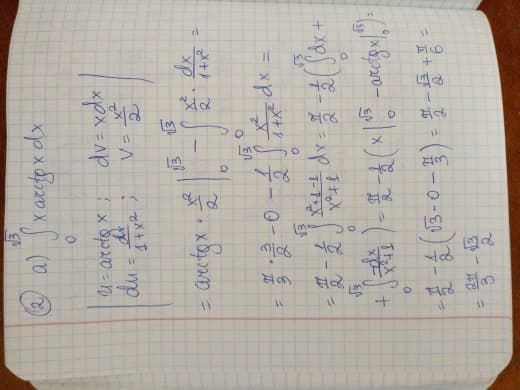 ② a) ∫₀^√3 x arctg x dx
| u = arctg x ; dv = xdx |
| du = dx/(1+x²) ; v = x²/2 |
= arctg x · x²/2 |₀^√3 − ∫₀^√3 x²/2 · dx/(1+x²) =
= π/3 · 3/2 − 0 − 1/2 ∫₀^√3 x²/(1+x²) dx =
= π/2 − 1/2 ∫₀^√3 (x²+1−1)/(x²+1) dx = π/2 − 1/2 (∫₀^√3 dx +
+ ∫₀^√3 −dx/(x²+1)) = π/2 − 1/2 (x |₀^√3 − arctg x |₀^√3) =
= π/2 − 1/2 (√3 − 0 − π/3) = π/2 − √3/2 + π/6 =
= 2π/3 − √3/2